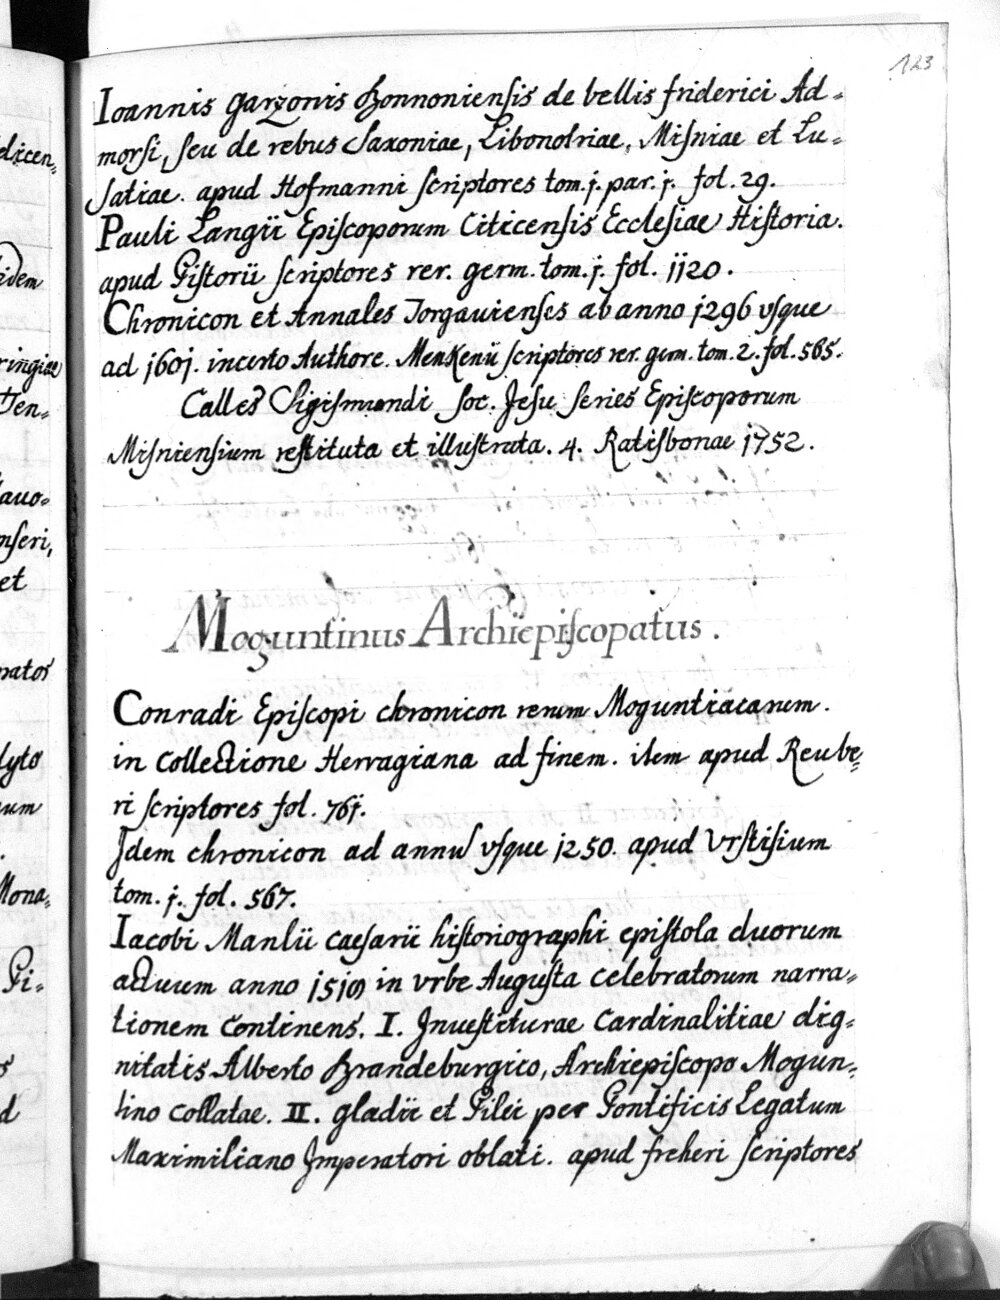 123
Ioannis Garzonis Bonnoniensis de bellis friderici Ad-
morsi, seu de rebus Saxoniae, Libonotriae, Misniae et Lu-
satiae. apud Hofmanni scriptores tom. j. par. j. fol. 29.
Pauli Langii Episcoporum Citicensis Ecclesiae Historia.
apud Pistorii scriptores rer. germ. tom. j. fol. jj20.
Chronicon et Annales Torgavienses ab anno j296 vsque
ad j60j. incerto Authore. Menkenii scriptores rer. germ. tom. 2. fol. 565.
Calles Sigismundi Soc. Jesu Series Episcoporum
Misniensium restituta et illustrata. 4. Ratisbonae 1752.
Moguntinus Archiepiscopatus.
Conradi Episcopi chronicon rerum Moguntiacarum.
in collectione Hervagiana ad finem. item apud Reube-
ri scriptores fol. 76j.
Jdem chronicon ad annū vsque j250. apud Vrstisium
tom. j. fol. 567.
Iacobi Manlii caesarii historiographi epistola duorum
actuum anno j5j9 in vrbe Augusta celebratorum narra-
tionem continens. I. Jnuestiturae Cardinalitiae dig-
nitatis Alberto Brandeburgico, Archiepiscopo Mogun-
tino collatae. II. gladii et Pilei per Pontificis Legatum
Maximiliano Jmperatori oblati. apud freheri scriptores
dicen-
idem
ringiae
Ten-
avo-
nseri,
et
natos
lyto
um
Mona-
Pi-
s
d